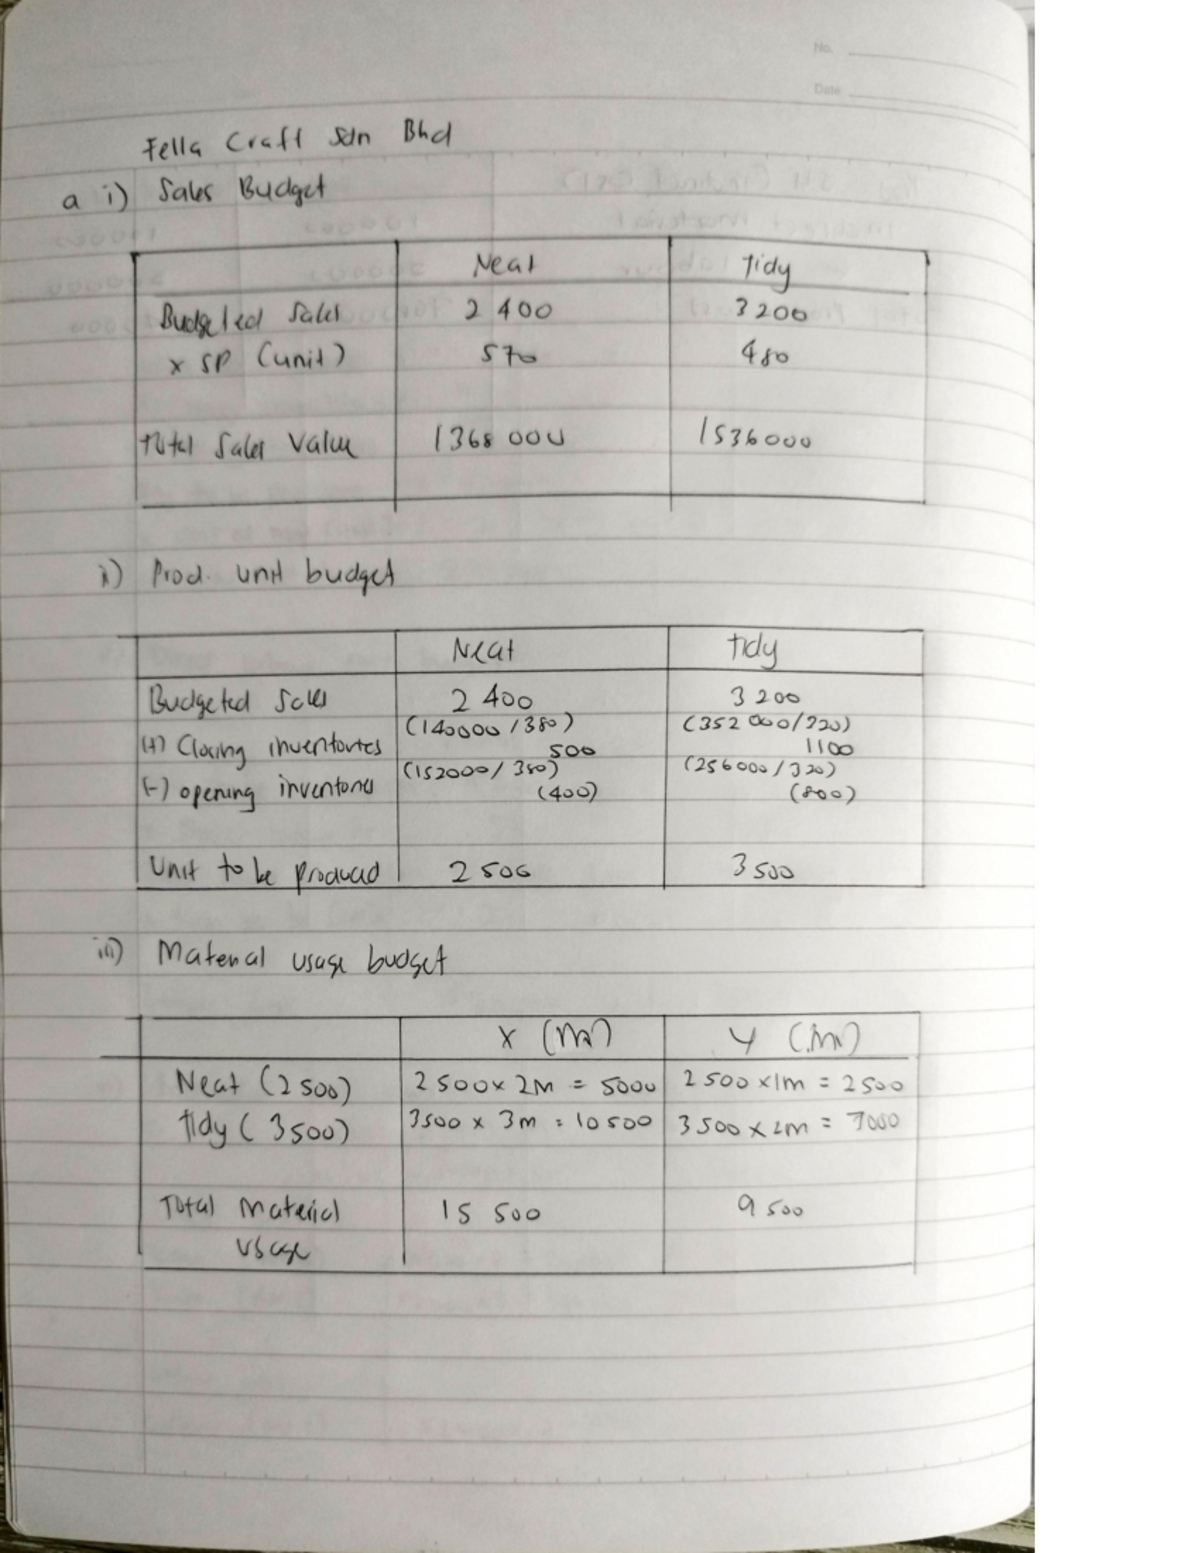 No.
Date
Fella Craft Sdn Bhd
a i) Sales Budget
Neat Tidy
Budgeted Sales 2 400 3 200
x SP (unit) 570 480
Total Sales Value 1 368 000 1 536 000
ii) Prod. unit budget
Neat Tidy
Budgeted Sales 2 400 3 200
(140000 / 380) (352 000/320)
(+) Closing inventories 500 1100
(152000 / 380) (256000 / 320)
(-) opening inventories (400) (800)
Unit to be produced 2 500 3 500
iii) Material usage budget
X (m) Y (m)
Neat (2 500) 2 500 x 2m = 5000 2 500 x 1m = 2 500
Tidy (3 500) 3500 x 3m = 10 500 3 500 x 2m = 7000
Total Material 15 500 9 500
usage